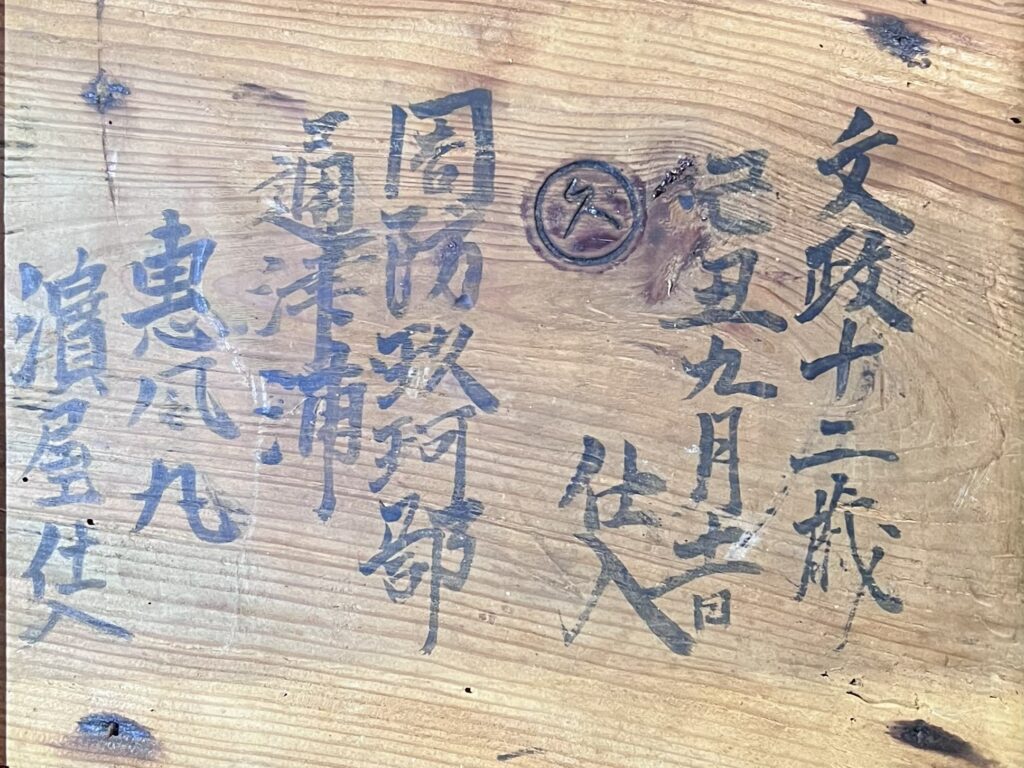 文政十二歳
己丑九月十一日
仕入
久
周防玖珂郡
通津浦
惠風丸
濵屋仕入